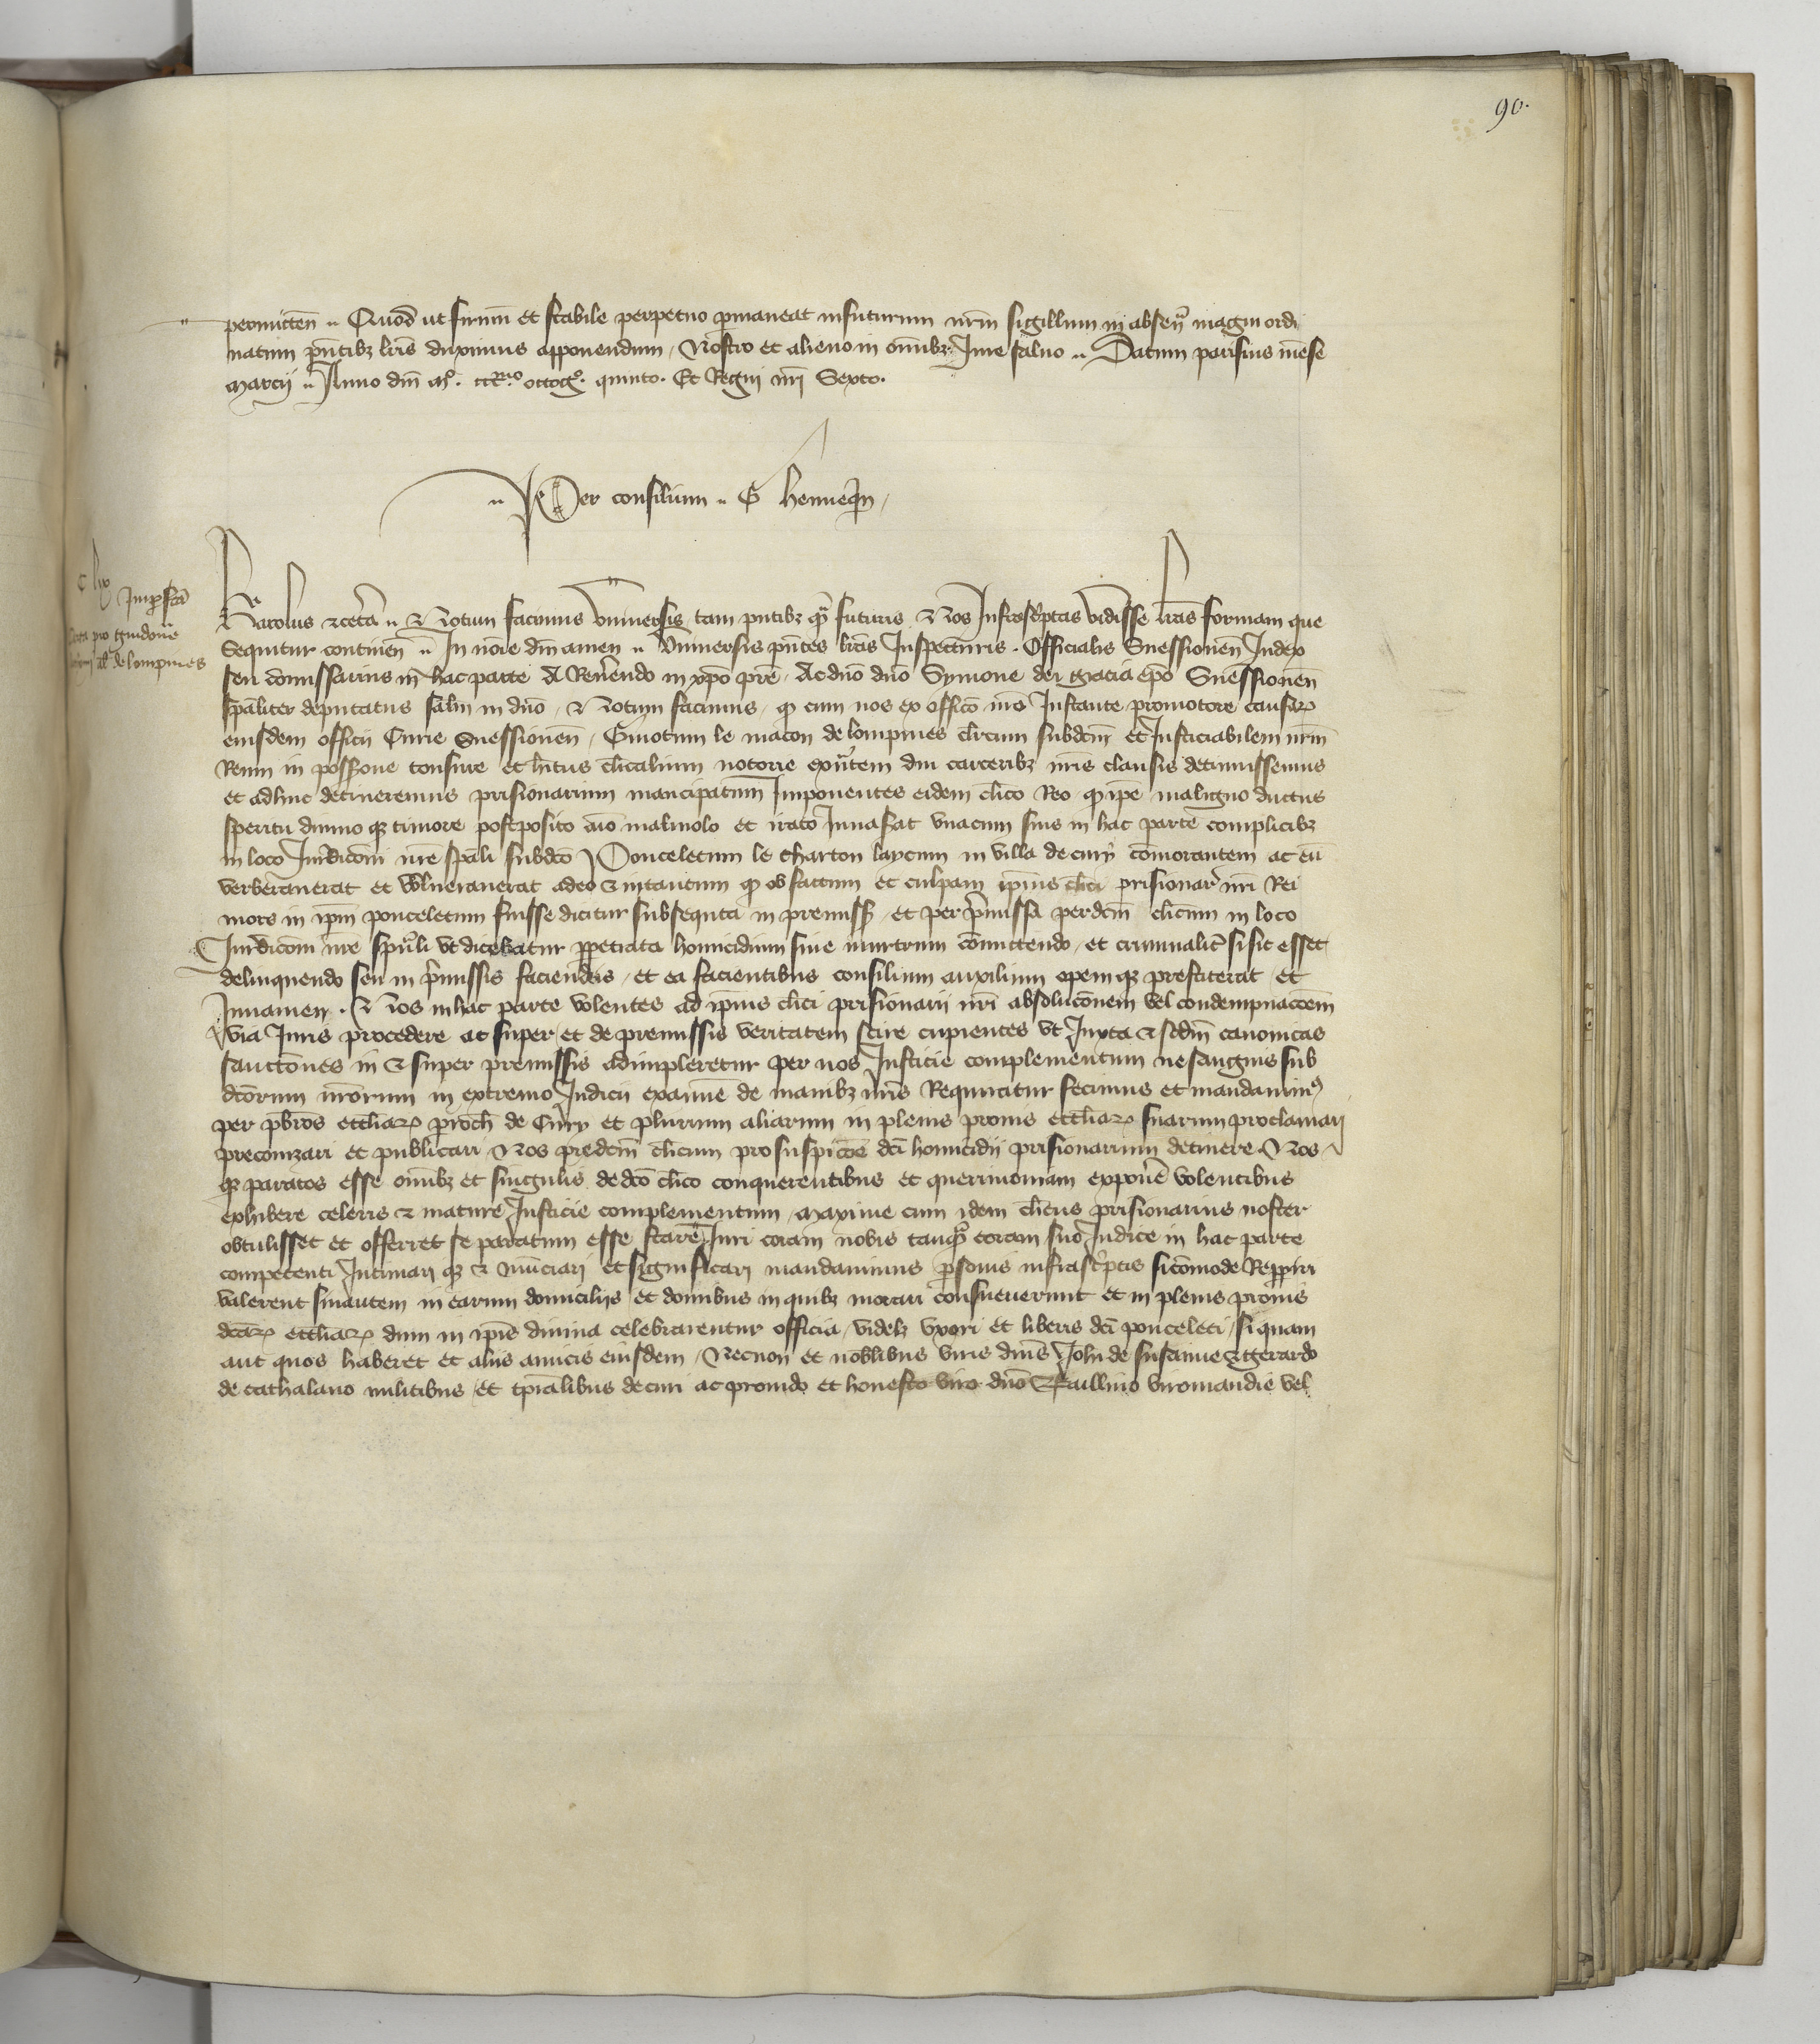 90.
permitten̄ .. Quod ut firmū et stabile perpetuo p̱maneat infuturum nr̄m sigillum in absen̄ magni ordi
natum pn̄tibȝ lr̄is duximus apponendum / Nostro et alieno in om̄ibȝ Iure saluo .. Datum parisius mēse
marcij .. Anno dn̄i mº. cccmo octogº. quinto. Et Regni nr̄i Sexto.
.. Per consilium .. G hennequin /
Karolus ⁊cetā .. Notum facimus Vniuersis tam pn̄tibȝ qͣ̄ futuris Nos Infrascͥptas vidisse lr̄as formam que
Sequitur continen̄ .. In nōie dn̄i amen .. Vniuersis pn̄tes lr̄as Inspecturis . Officialis Suessionen̄ Iudex
seu cōmissarius in hac parte A Reuerēdo in xp̄o pr̄e Ac dn̄o dn̄o Symone dei gracia ep̄o Suessionen̄
sp̄aliter deputatus salt̄m in dn̄o ⁊ Notum facimus qͫ cum nos ex offico nr̄o Instante promotore causaꝝ
eiusdem officij Curie Suessionen̄ / Guiotum le macon de lompnies clr̄icum subdc̄m et Iusticiabilem nr̄m
Reum in possess̄one tonsure et hi̅tus cli̅calium notorie exn̄tem diu carceribȝ nr̄is clausis detinuissemus
et adhuc detineremus prisionarium mancipatum Imponentes eidem cli̅co Reo qͫ ip̄e maligno ductus
spiritu diuino qȝ timore postposito aīo maliuolo et irato Inuas̄at vnacum suis in hac parte complicibȝ
in loco Iur̄dicōni nr̄e sp̄ali subdc̄o Ponceletum le charton laycum in villa de cury cōmorantem ac eū
verberauerat et vulnerauerat adeo ⁊ intantum qͫ ob factum et culpam ip̄ius cli̅ci prisionar̄ nr̄i Rei
mors in ip̄m ponceletum fuisse dicitur subsequta in premiss̄ / et per p̄missa perdc̄m cli̅cum in loco
Iur̄dicōni nr̄e sp̄uali vt dicebatur ꝑpetrata homicidium siue murtrum cōmittendo / et criminalit̄ si sic esset
delinquendo seu in p̄missis faciendis / et ea facientibus consilium auxilium opem qȝ prestiterat / et
Iuuamen . Nos in hac parte volentes ad ip̄ius cli̅ci prisionarij nr̄i absolucōnem vel condempnacōem
via Iuris procedere ac super et de premissis veritatem scire cupientes vt Iuxta ⁊ scdm̄ canonicas
sanctōnes in ⁊ super premissis adimpleretur per nos Iusticie complementum ne sanguis sub
dc̄orum nr̄orum in extremo Iudicij examīe de manibȝ nr̄is Requiratur fecimus et mandauim9
per pb̄ros eccl̄iaꝝ proch̄ de Cury et plurium aliarum in plenis pronis eccl̄iaꝝ suarum proclamari
preconizari et publicari Nos predc̄m cli̅cum pro suspicōe dc̄i homicidij prisionarium detinere Nos
qȝ paratos esse om̄ibȝ et singulis de dc̄o cli̅co conquerentibus et querimoniam exponēe volentibus
exhibere celeris ⁊ mature Iusticie complementum / maxime cum idem cli̅cus prisionarius noster
obtulisset et offerret se paratum esse stare Iuri coram nobis tanqͣ̄ coram suo Iudice in hac parte
competenti Intimari qȝ ⁊ nūciari et significari mandauimus p̱sonis infrascͥptis si cōmode Repp̱iri
valerent sinautem in earum domicilijs et domibus in quibȝ morari consueuerunt et in plenis pronis
dc̄aꝝ eccl̄iaꝝ dum in ip̄is diuina celebrarentur officia / videlȝ vxori et liberis dc̄i ponceleti / si quam
aut quos haberet et alijs amicis eiusdem / Necnon et nobl̄ibus viris dn̄is Joh̄ de susanne ⁊ gerardo
de cathalano militibus / et tp̄ralibus de cury ac prouido et honesto viro dn̄o Baulliuo viromandie vel